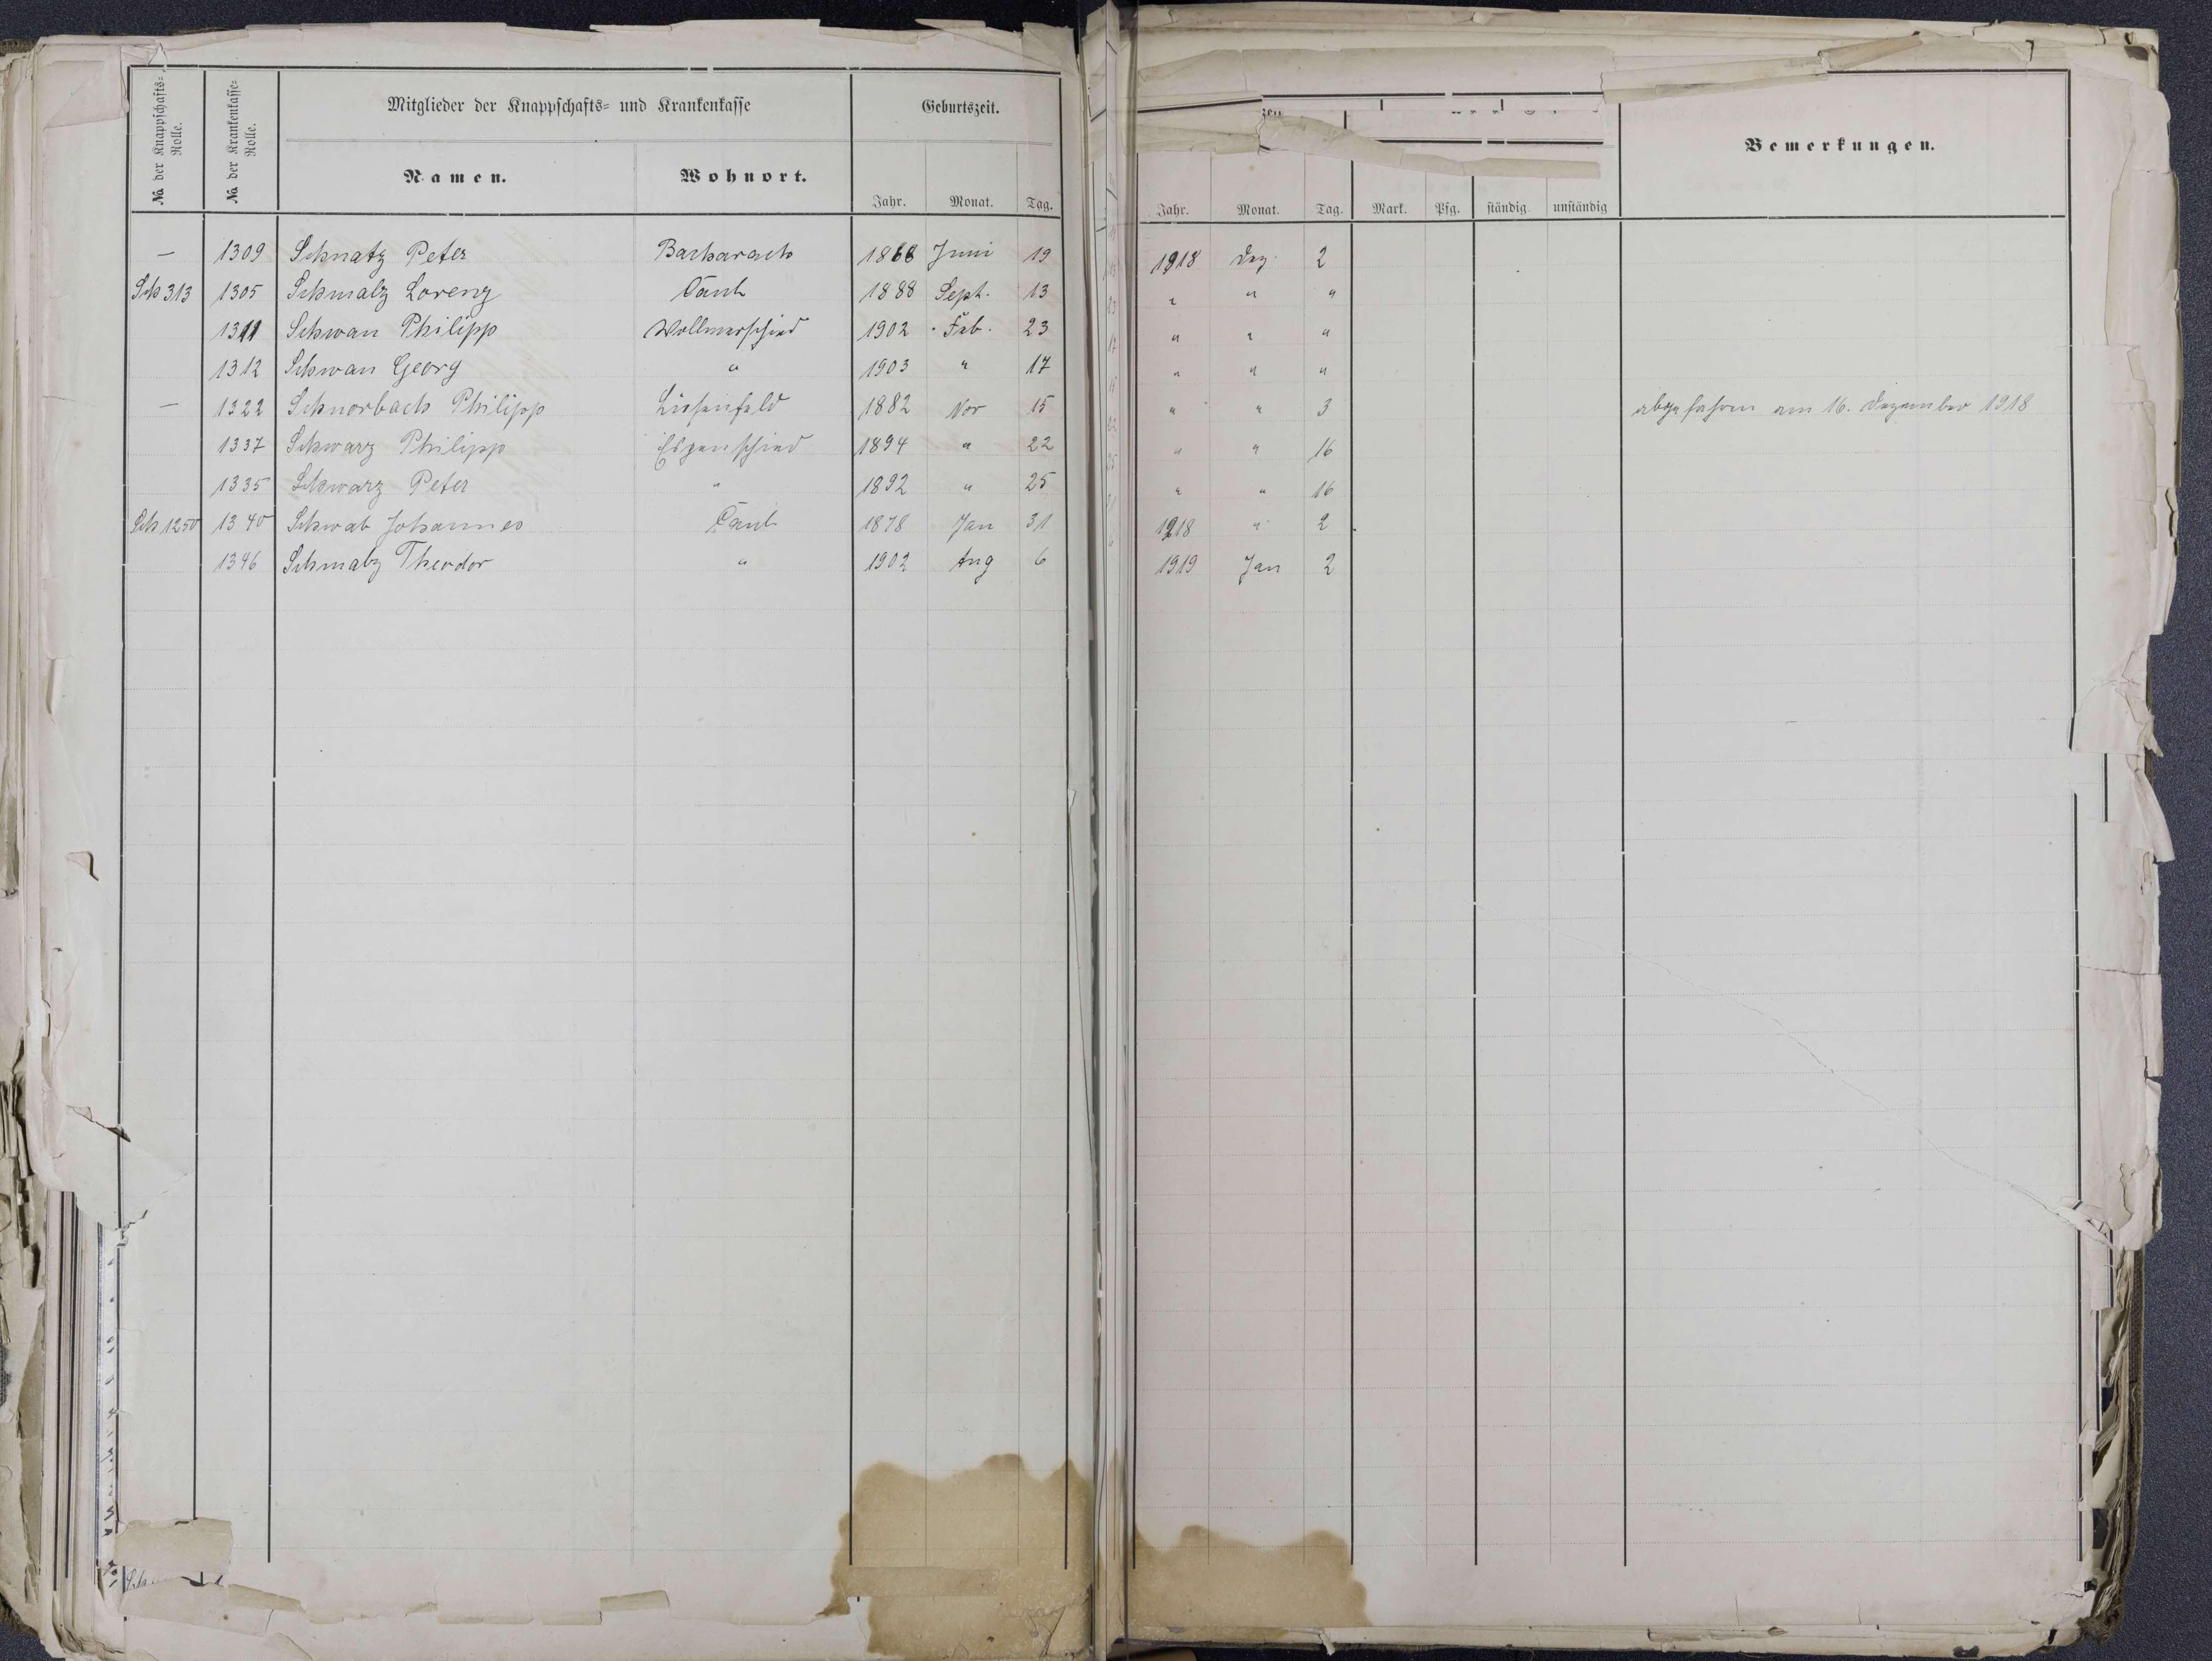 No. der Knappschafts-Rolle.
No. der Krankenkasse-Rolle.
Mitglieder der Knappschafts- und Krankenkasse
Geburtszeit.
Namen. Wohnort.
Jahr. Monat. Tag.
Jahr. Monat. Tag. Mark. Pfg. ständig unständig
Bemerkungen.
— 1309 Schnatz Peter Bacharach 1868 Juni 19 1918 Dez. 2
Sch 313 1305 Schmalz Lorenz Caub 1888 Sept. 13 " " "
1311 Schwan Philipp Wollmerschied 1902 Feb. 23 " " "
1312 Schwan Georg " 1903 " 17 " " "
— 1322 Schnorbach Philipp 1882 Nov 15 " " 3 abgefahren am 16. Dezember 1918
1337 Schwarz Philipp Espenschied 1894 " 22 " " 16
1335 Schwarz Peter " 1892 " 25 " " 16
Sch 1250 1340 Schwab Johannes Caub 1878 Jan 31 1918 " 2
1346 Schmalz Theodor " 1902 Aug 6 1919 Jan 2